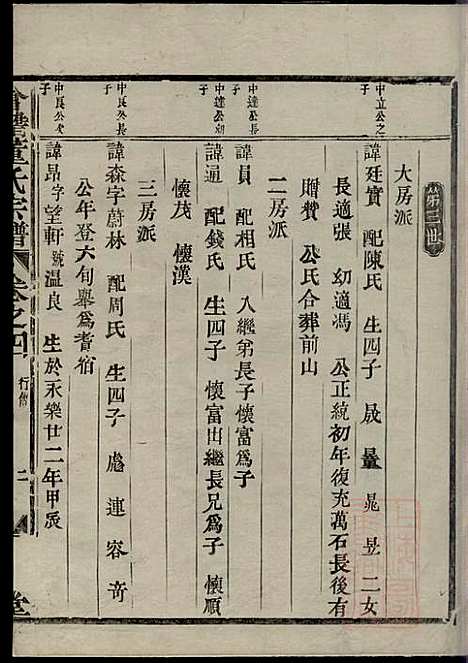 第三世
大房派
中立公之子
諱廷實 配陳氏 生四子 晟 量 晁 昱 二女
長適張 幼適馮 公正統初年復充萬石長後有
贈贊 公氏合葬前山
二房派
中達公長子
諱員 配相氏 入繼弟長子懷富爲子
中達公初子
諱通 配錢氏 生四子 懷富出繼長兄爲子 懷順
懷茂 懷漢
三房派
中良公長子
諱森字蔚林 配周氏 生四子 彪 連 容 奇
公年登六旬舉爲耆宿
中良公次子
諱昂字望軒號溫良 生於永樂廿二年甲辰
董氏宗譜 卷之四 行傳 二 堂